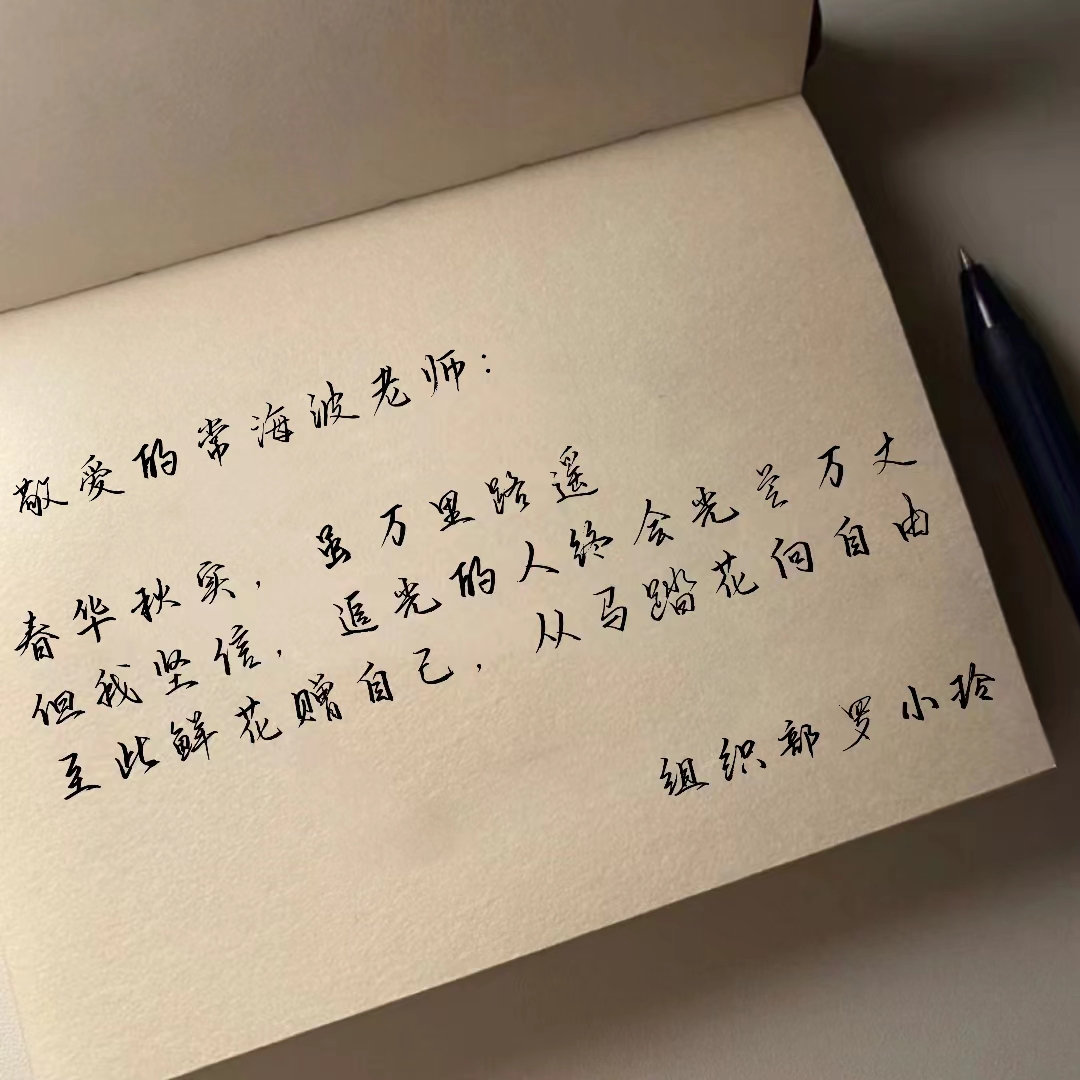 敬爱的常海波老师：
春华秋实，虽万里路遥
但我坚信，追光的人终会光芒万丈
至此鲜花赠自己，从马踏花向自由
组织部罗小玲